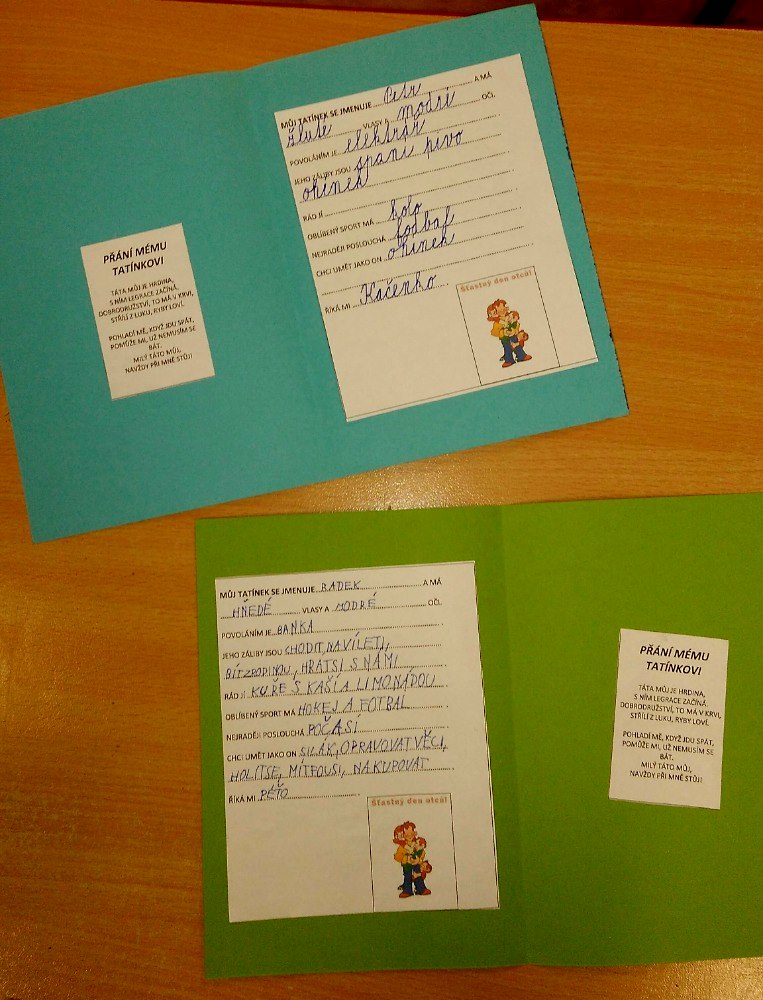 PŘÁNÍ MÉMU
TATÍNKOVI
TÁTA MŮJ JE HRDINA,
S NÍM LEGRACE ZAČÍNÁ,
DOBRODRUŽSTVÍ, TO MÁ V KRVI,
STŘÍLÍ Z LUKU, RYBY LOVÍ.
POHLADÍ MĚ, KDYŽ JDU SPÁT,
POMŮŽE MI, UŽ NEMUSÍM SE
BÁT.
MILÝ TÁTO MŮJ,
NAVŽDY PŘI MNĚ STŮJ!
MŮJ TATÍNEK SE JMENUJE Petr A MÁ
žluté VLASY A modrí OČI.
POVOLÁNÍM JE elektrář
JEHO ZÁLIBY JSOU spaní pivo
ohínek
RÁD JÍ
OBLÍBENÝ SPORT MÁ kolo
NEJRADĚJI POSLOUCHÁ fodbal
CHCI UMĚT JAKO ON ohínek
ŘÍKÁ MI Kačenko
Šťastný den otců!
MŮJ TATÍNEK SE JMENUJE RADEK A MÁ
HŇEDÉ VLASY A MODRÉ OČI.
POVOLÁNÍM JE BANKA
JEHO ZÁLIBY JSOU CHODIT NAVÍLETI,
BÍTZRODINOU, HRÁTSI S NÁMI
RÁD JÍ KUŘE S KAŠÍ A LIMONÁDOU
OBLÍBENÝ SPORT MÁ HOKEJ A FOTBAL
NEJRADĚJI POSLOUCHÁ POČASÍ
CHCI UMĚT JAKO ON SILÁK, OPRAVOVAT VĚCI,
HOLITSE, MÍTFOUSI, NAKUPOVAT
ŘÍKÁ MI PÉŤO
Šťastný den otců!
PŘÁNÍ MÉMU
TATÍNKOVI
TÁTA MŮJ JE HRDINA,
S NÍM LEGRACE ZAČÍNÁ,
DOBRODRUŽSTVÍ, TO MÁ V KRVI,
STŘÍLÍ Z LUKU, RYBY LOVÍ.
POHLADÍ MĚ, KDYŽ JDU SPÁT,
POMŮŽE MI, UŽ NEMUSÍM SE
BÁT.
MILÝ TÁTO MŮJ,
NAVŽDY PŘI MNĚ STŮJ!